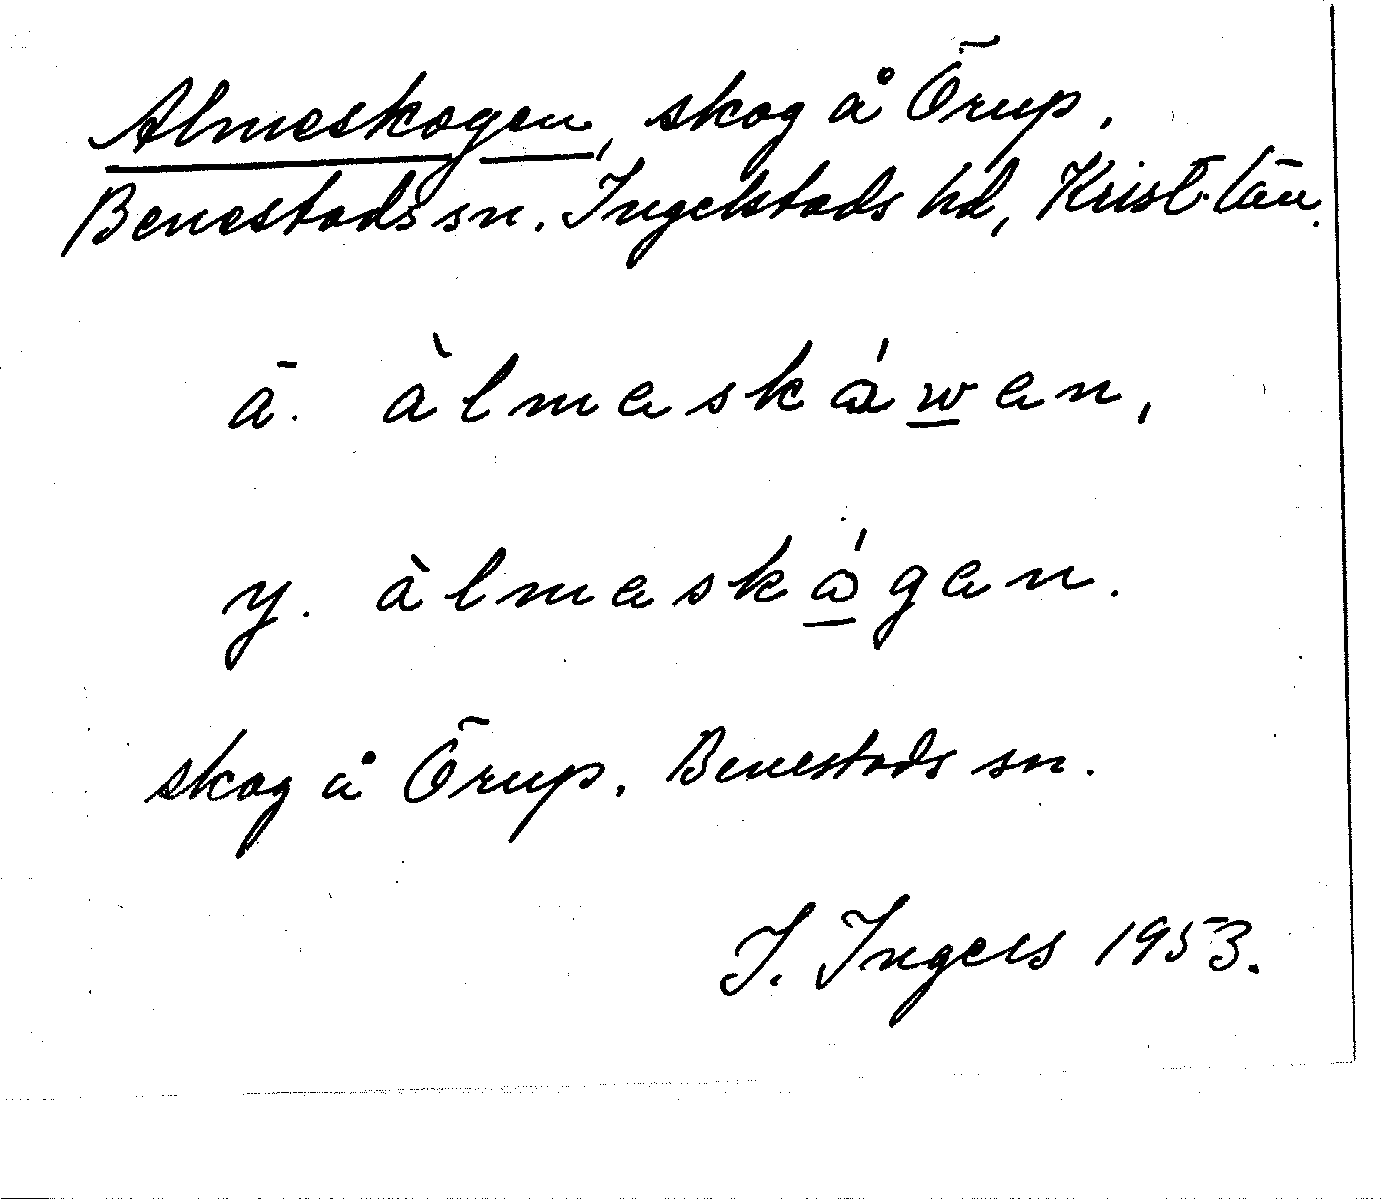 Almeskogen, skog å Örup.
Benestads sn. Ingelstads hd, Krist. län.
ä. àlmeskáwen,
y. àlmeskágen.
skog å Örup. Benestads sn.
I. Ingers 1953.